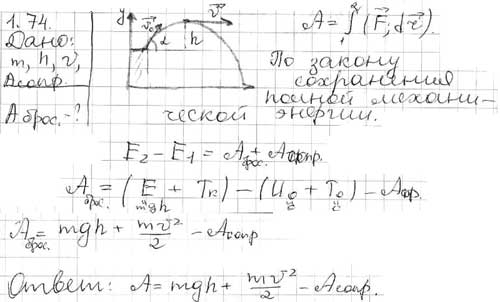 1.74.
Дано:
m, h, v,
Aсопр.
Aброс. - ?
y v₀ α h v
A = ∫₁² (F, dr).
По закону
сохранения
полной механи-
ческой энергии.
E₂ - E₁ = Aброс. + Aсопр.
Aброс. = (E + Tк) - (U₀ + T₀) - Aсопр.
mgh
Aброс. = mgh + mv²/2 - Aсопр.
Ответ: A = mgh + mv²/2 - Aсопр.